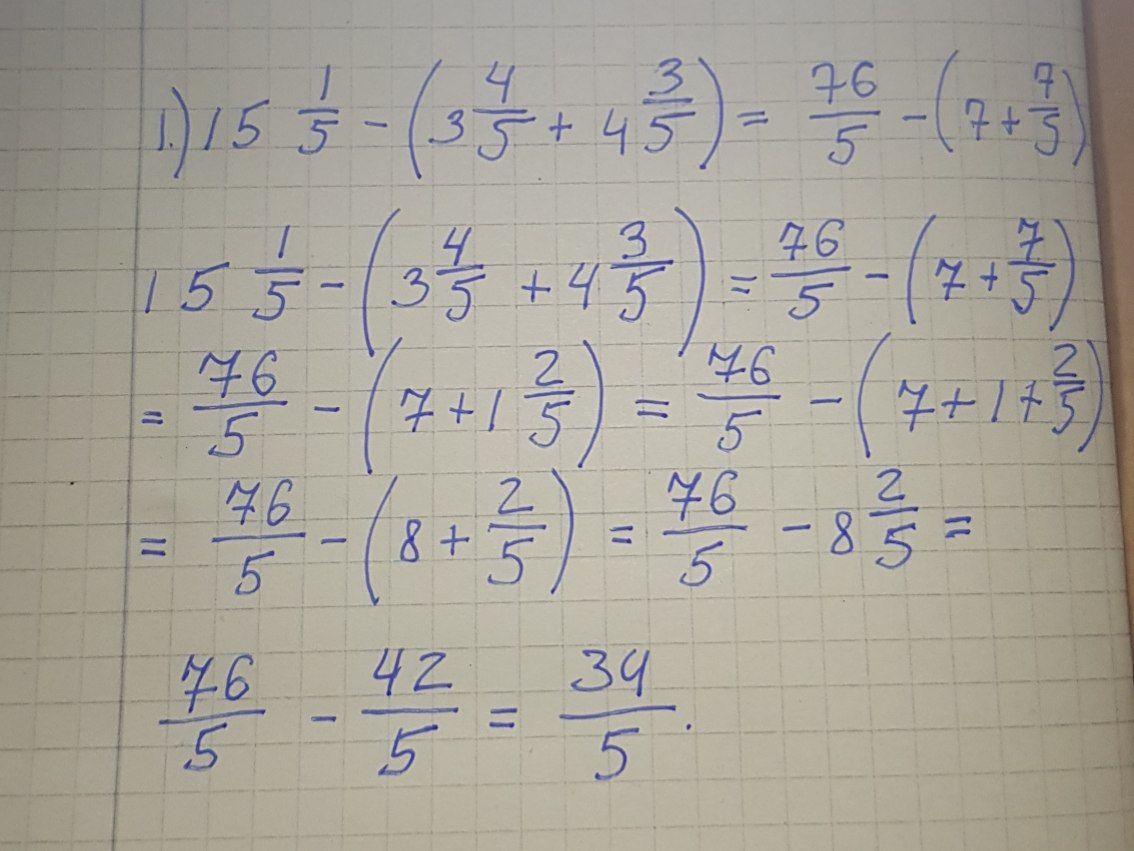 1.) 15 1/5 - (3 4/5 + 4 3/5) = 76/5 - (7 + 7/5)
15 1/5 - (3 4/5 + 4 3/5) = 76/5 - (7 + 7/5)
= 76/5 - (7 + 1 2/5) = 76/5 - (7 + 1 + 2/5)
= 76/5 - (8 + 2/5) = 76/5 - 8 2/5 =
76/5 - 42/5 = 34/5.